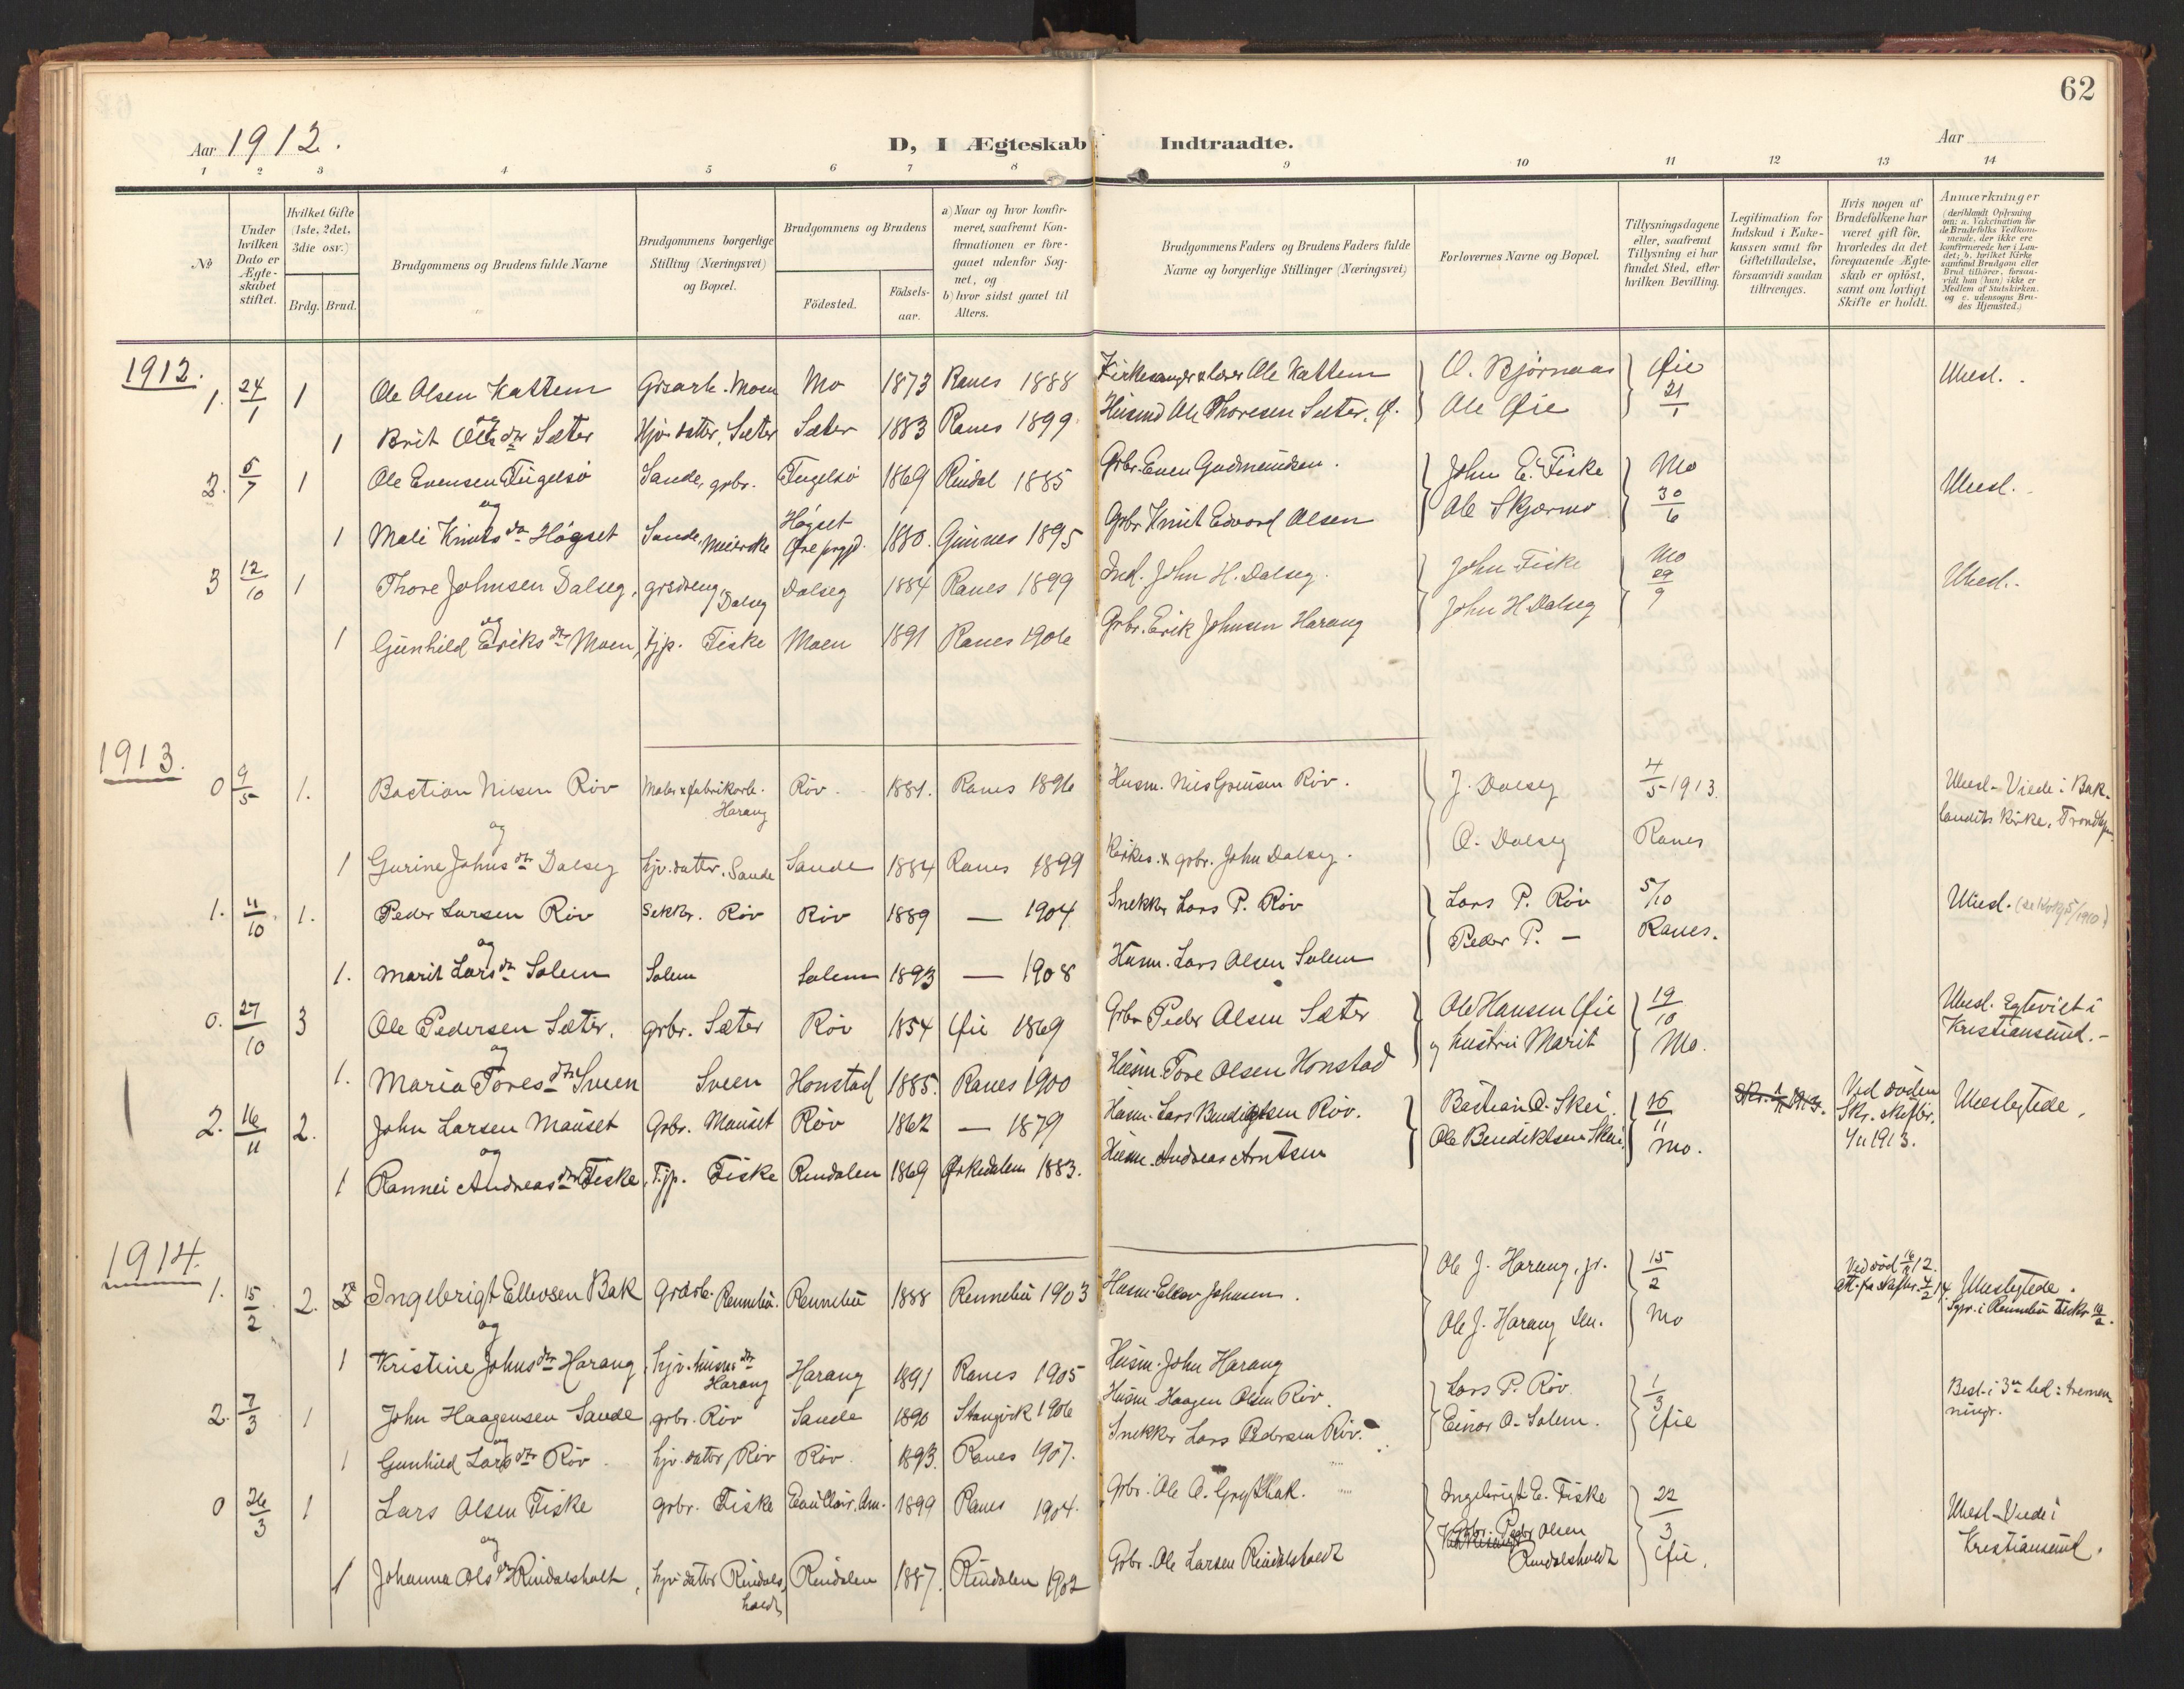 62
Aar 1912.
D, I Ægteskab Indtraadte.
Aar
1 2 3 4 5 6 7 8 9 10 11 12 13 14
No
Under hvilken Dato er Ægte-skabet stiftet.
Hvilket Gifte (1ste, 2det, 3die osv.)
Brdg. Brud.
Brudgommens og Brudens fulde Navne
Brudgommens borgerlige Stilling (Næringsvei) og Bopæl.
Brudgommens og Brudens
Födested.
Födsels-aar.
a) Naar og hvor konfir-meret, saafremt Kon-firmationen er fore-gaaet udenfor Sog-net, og
b) hvor sidst gaaet til Alters.
Brudgommens Faders og Brudens Faders fulde Navne og borgerlige Stillinger (Næringsvei)
Forlovernes Navne og Bopæl.
Tillysningsdagene eller, saafremt Tillysning ei har fundet Sted, efter hvilken Bevilling.
Legitimation for Indskud i Enke-kassen samt for Giftetilladelse, forsaavidt saadan tiltrænges.
Hvis nogen af Brudefolkene har været gift før, hvorledes da det foregaaende Ægte-skab er opløst, samt om lovligt Skifte er holdt.
Anmærkninger
(deriblandt Oplysning om: a. Vakcination for de Brudefolks Vedkom-mende, der ikke ere konfirmerede her i Lan-det; b. hvilket Kirke-samfund Brudgom eller Brud tilhører, forsaa-vidt han (hun) ikke er Medlem af Statskirken. og c. udensogns Bru-des Hjemsted.)
1912.
1. 24/1 1 Ole Olsen Kattem Grsarb. Moen Mo 1873 Ranes 1888 Kirkesanger & lærer Ole Kattem O. Bjørnaas Øie 21/1 Ubesl.
og
1 Brit Ols dtr Sæter Hjv. datter, Sæter Sæter 1883 Ranes 1899 Husmd Ole Thoresen Sæter, Ø. Ole Øie
2. 5/7 1 Ole Evensen Fugelsø Sande, grbr. Fugelsø 1869 Rindal 1885 Grbr. Even Gudmundsen. John E. Fiske Mo 30/6 Ubesl.
og
1 Mali Knuts dtr Høgset Sande, Meierske Høgset Øre prgjd. 1880. Gimnes 1895 Grbr Knut Edvard Olsen Ole Skjærmo
3 12/10 1 Thore Johnsen Dalseg, grsdreng, Dalseg Dalseg 1884 Ranes 1899 Ind. John H. Dalseg. John Fiske Mo 29/9 Ubesl.
og
1 Gunhild Eriks dtr Moen, tjp. Fiske Moen 1891 Ranes 1906 Grbr. Erik Johnsen Harang John H Dalseg
1913.
0 9/5 1. Bastian Nilsen Røv Maler & fabrikarb. Harang Røv 1881. Ranes 1896 Husm. Nils Røv. J. Dalseg 4/5 1913. Ubesl. Viede i Bak-
landets Kirke, Trondhjem
og
1 Gurine Johns dtr Dalseg hjv. datter. Sande Sande 1884 Ranes 1899 Kirkes. & grbr. John Dalseg. O. Dalseg Ranes
1. 11/10 1. Peder Larsen Røv Snekker. Røv Røv 1889 — 1904 Snekker Lars P. Røv Lars P. Røv 5/10 Ubesl.
og
1. Marit Lars dtr Solem Solem Solem 1893 — 1908 Husm. Lars Olsen Solem Peder P. — Ranes.
0. 27/10 3 Ole Pedersen Sæter, grbr. Sæter Røv 1854 Øie 1869 Grbr Peder Olsen Sæter Ole Hansen Øie 19/10 Ubesl. Egteviet i
Kristiansund.
og
1. Maria Tores dtr Sveen Sveen Honstad 1885. Ranes 1900 Husm. Tore Olsen Honstad og hustru Marit Mo.
2. 16/11 2. John Larsen Mauset Grbr. Mauset Røv 1862 — 1879 Husm. Lars Bendigtsen Røv. Bastian O. Skei. 16/11 Ved døden Skr. skiftbr. 4/11 1913. Ubeslegtede.
og
1 Rannei Andreas dtr Fiske, Tjp. Fiske Rindalen 1869 Ørkedalen 1883. Husm. Andreas Arntsen Ole Bendiktsen Skei Mo.
1914.
1. 15/2 2. Ingebrigt Ellevsen Bak Grdarb. Rennebu. Rennebu 1888 Rennebu 1903 Husm. Ellev Johnsen. Ole J. Harang, jr. 15/2 Ved død 12. att. fra skiftr. 4/2 14. Ubeslegtede.
og
1 Kristine Johns dtr Harang, hjv. husm. dtr Harang Harang 1891 Ranes 1905 Husm. John Harang Ole J. Harang sen. Mo
2. 7/3 1 John Haagensen Sande grbr. Røv Sande 1890 Stangvik 1906 Husm Haagen Olsen Røv. Lars P. Røv. 1/3 Besl. i 3 led: tremen-
ninger.
og
1 Gunhild Lars dtr Røv hjv. dater, Røv Røv 1893. Ranes 1907. Snekker Lars Pedersen Røv. Einar O. Solem. Øie
0 26/3 1 Lars Olsen Fiske grbr. Fiske Eau Clair. Am. 1899 Ranes 1904. Grbr. Ole O. Ingebrigt E. Fiske 22/3 Ubesl. Viede i
Kristiansund.
og
1 Johanna Ols dtr Rindalsholt, hjv. dater Rindals-holdt Rindalen 1887. Rindalen 1902 Grbr. Ole Larsen Rindalsholdt Grbr. Peder Olsen Rindalsholdt Øie.